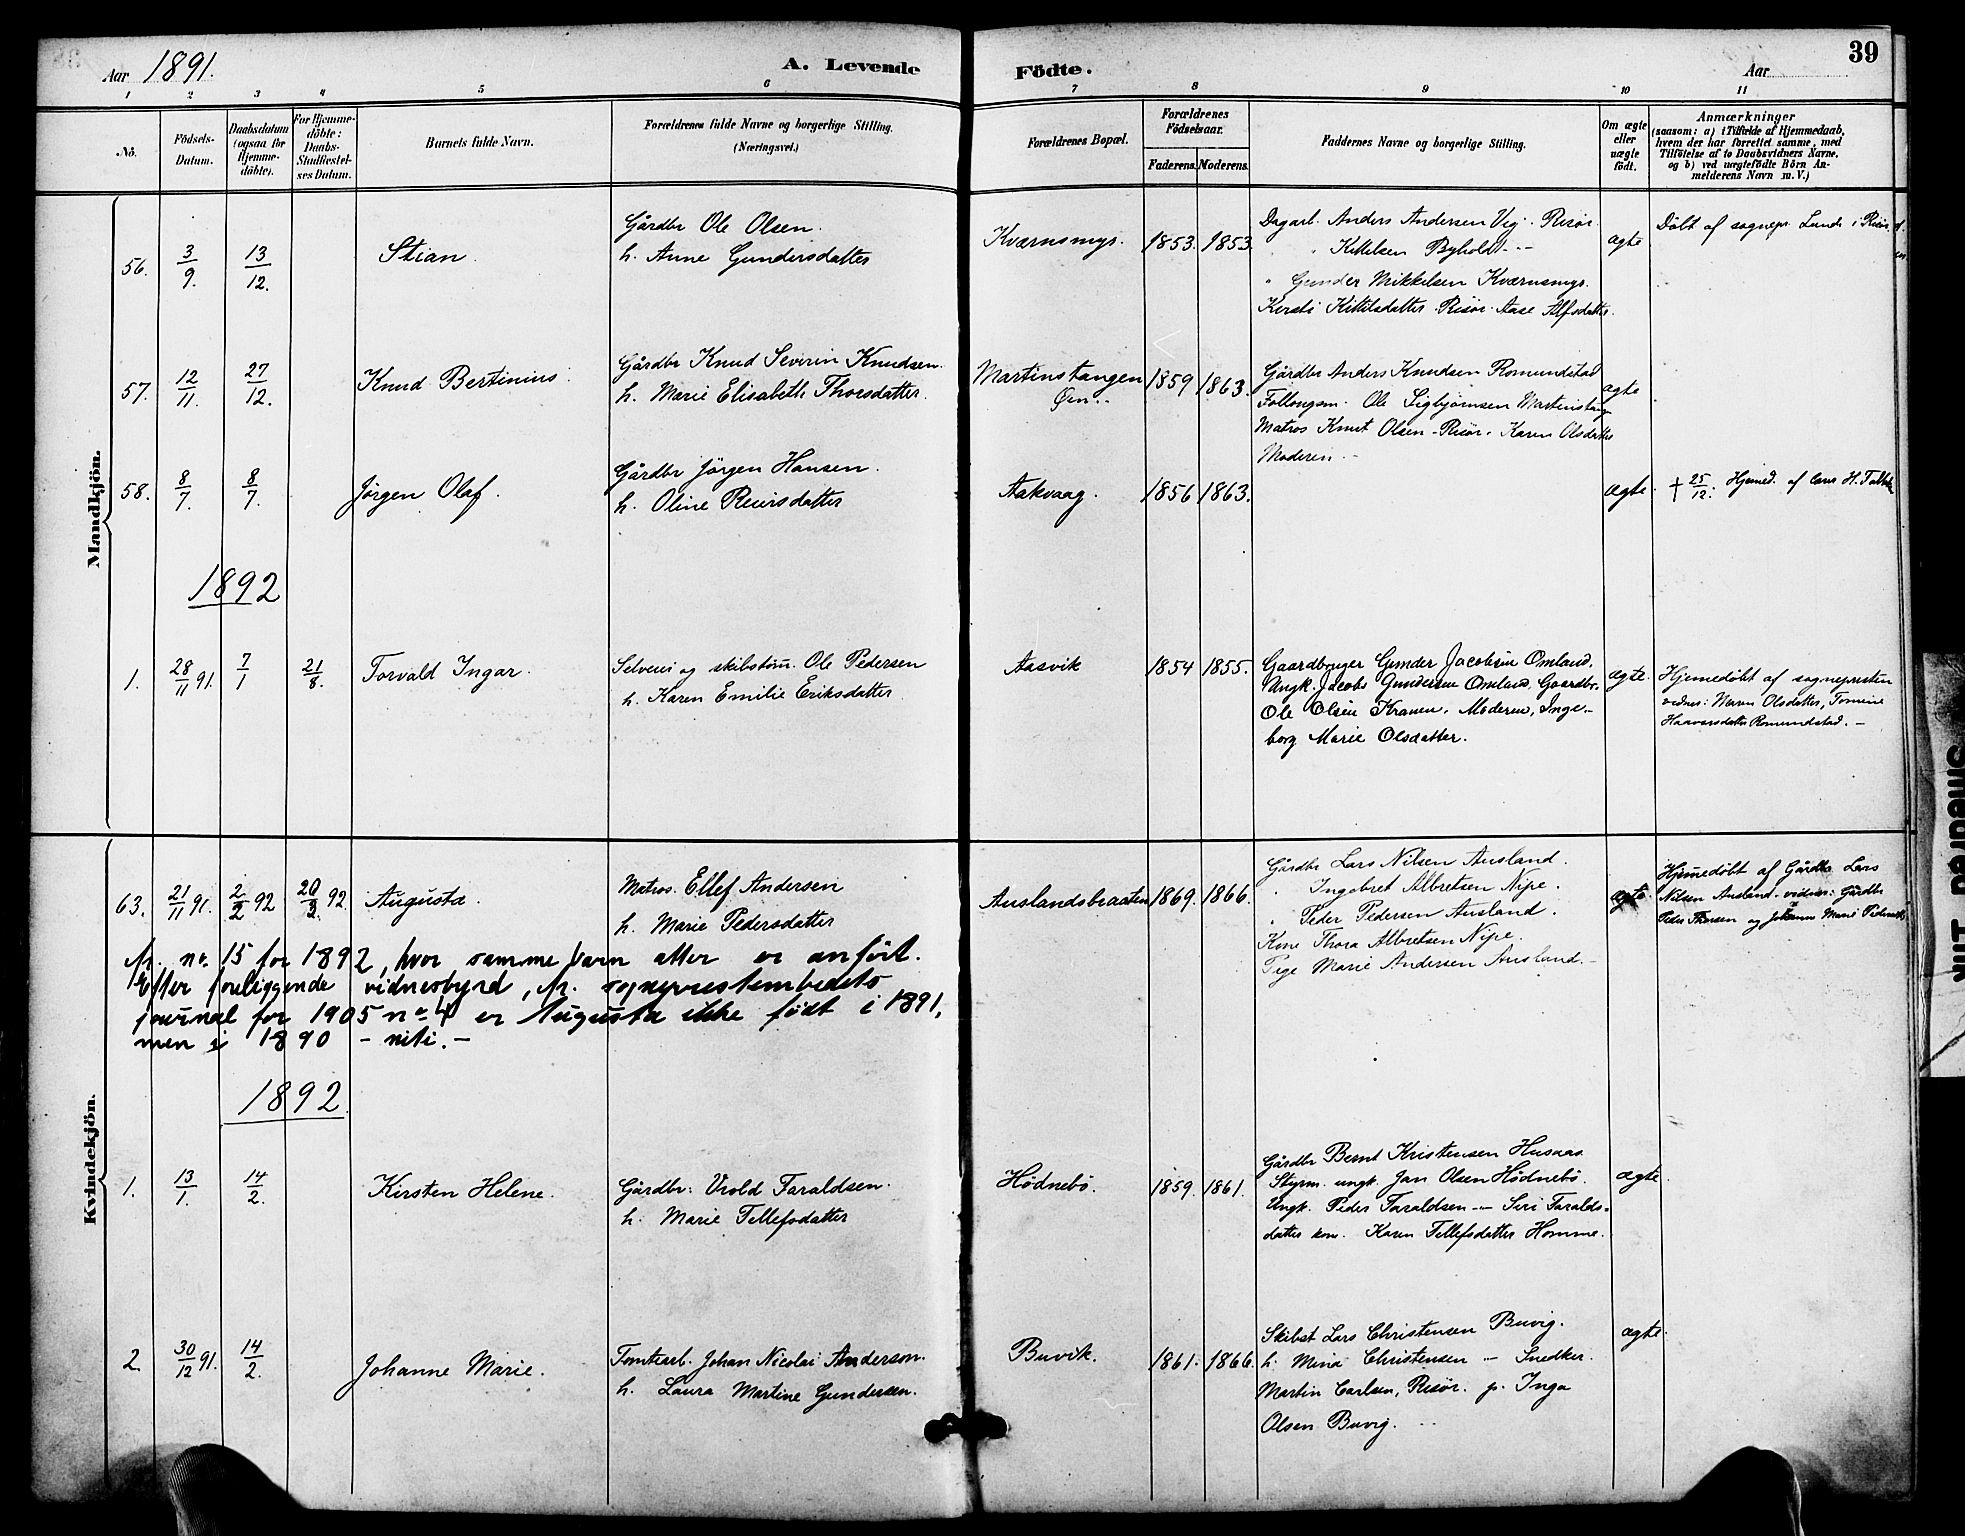 39
Aar 1891.
A. Levende Födte.
Aar
1 2 3 4 5 6 7 8 9 10 11
No.
Födsels-Datum.
Daabsdatum (ogsaa for Hjemme-döbte).
For Hjemme-döbte: Daabs-Stadfæstel-ses Datum.
Barnets fulde Navn.
Forældrenes fulde Navne og borgerlige Stilling.
(Næringsvei.)
Forældrenes Bopæl.
Forældrenes Födselsaar.
Faderens. Moderens.
Faddernes Navne og borgerlige Stilling.
Om ægte eller uægte födt.
Anmærkninger
(saasom: a) i Tilfælde af Hjemmedaab,
hvem der har forrettet samme, med
Tilföielse af to Daabsvidners Navne,
og b) ved uægtefödte Börn An-
melderens Navn m. V.)
Mandkjön.
56. 3/9. 13/12. Stian.
Gårdbr Ole Olsen.
h. Anne Gundersdatter
Kværnsmyr. 1853. 1853.
Dagarb. Anders Andersen Vej. Risør.
" Kittilsen Byholdt -"-
" Gunder Mikkelsen Kværnsmyr.
Kirsti Kittilsdatter Risør. Aase Alfsdatter.
ægte
Döbt af sognepr. Lunde i Risør
57. 12/11. 27/12. Knud Bertinius.
Gårdbr Knud Severin Knudsen.
h. Marie Elisabeth Thorsdatter.
Martinstangen
Øen.
1859 1863.
Gårdbr Anders Knudsen Romundstad
Ole Sigbjørnsen Martinstang
Matros Knut Olsen - Risør. Karen Olsdatter
Moderen.
ægte
58. 8/7. 8/7. Jørgen Olaf.
Gårdbr Jørgen Hansen.
h. Oline Reiersdatter
Aakvaag. 1856 1863.
ægte.
† 25/12. Hjemmed. af Lars H.
1892
1. 28/11 91. 7/1 21/8. Torvald Ingar.
Selveier og skibstøm. Ole Pedersen
h. Karen Emilie Eriksdatter.
Aasvik 1854 1855.
Gaardbruger Gunder Jacobsen Omland,
Ungk. Jacob Gundersen Omland, Gaardbr.
Ole Olsen Kranen, Moderen, Inge-
borg Marie Olsdatter.
ægte.
Hjemedöbt af sognepresten
vidner: Maren Olsdatter, Tomine
Haavorsdatter Romundstad. -
Kvindekjön.
63. 21/11 91. 2/2 92 20/3. 92. Augusta.
Matros. Ellef Andersen
h. Marie Pedersdatter
Auslandsbraaten 1869. 1866.
Gårdbr Lars Nilsen Ausland.
" Ingebret Albretsen Nipe.
" Peder Pedersen Ausland.
Kone Thora Albretsen Nipe.
Pige Marie Andersen Ausland. -
ægte
Hjemedöbt af Gårdbr Lars
Nilsen Ausland. vidner: Gårdbr
Peder Thorsen og Johanne Marie
fr. no. 15 for 1892, hvor samme barn atter er anfört.
Efter foreliggende vidnesbyrd, fr. sogneprestembedets
journal for 1905 no. 4 er Augusta ikke født i 1891,
men i 1890 - niti. -
1892.
1. 13/1. 14/2. Kirsten Helene.
Gårdbr. Vrold Taraldsen.
h. Marie Tellefsdatter
Hødnebø. 1859. 1861.
Gårdbr Bernt Kristensen Husaas
Styrm. ungk. Jan Olsen Hødnebø.
Ungk. Peder Taraldsen -"- Siri Taralds-
datter kone. Karen Tellefsdatter Homme.
ægte.
2. 30/12 91. 14/2. Johanne Marie.
Tomtearb. Johan Nicolai Anderson.
h. Laura Martine Gundersen.
Buvik. 1861. 1866.
Skibst Lars Christensen Buvig.
h. Mina Christensen -"- Snedker.
Martin Carlsen, Risør. p. Inga
Olsen Buvig.
ægte.